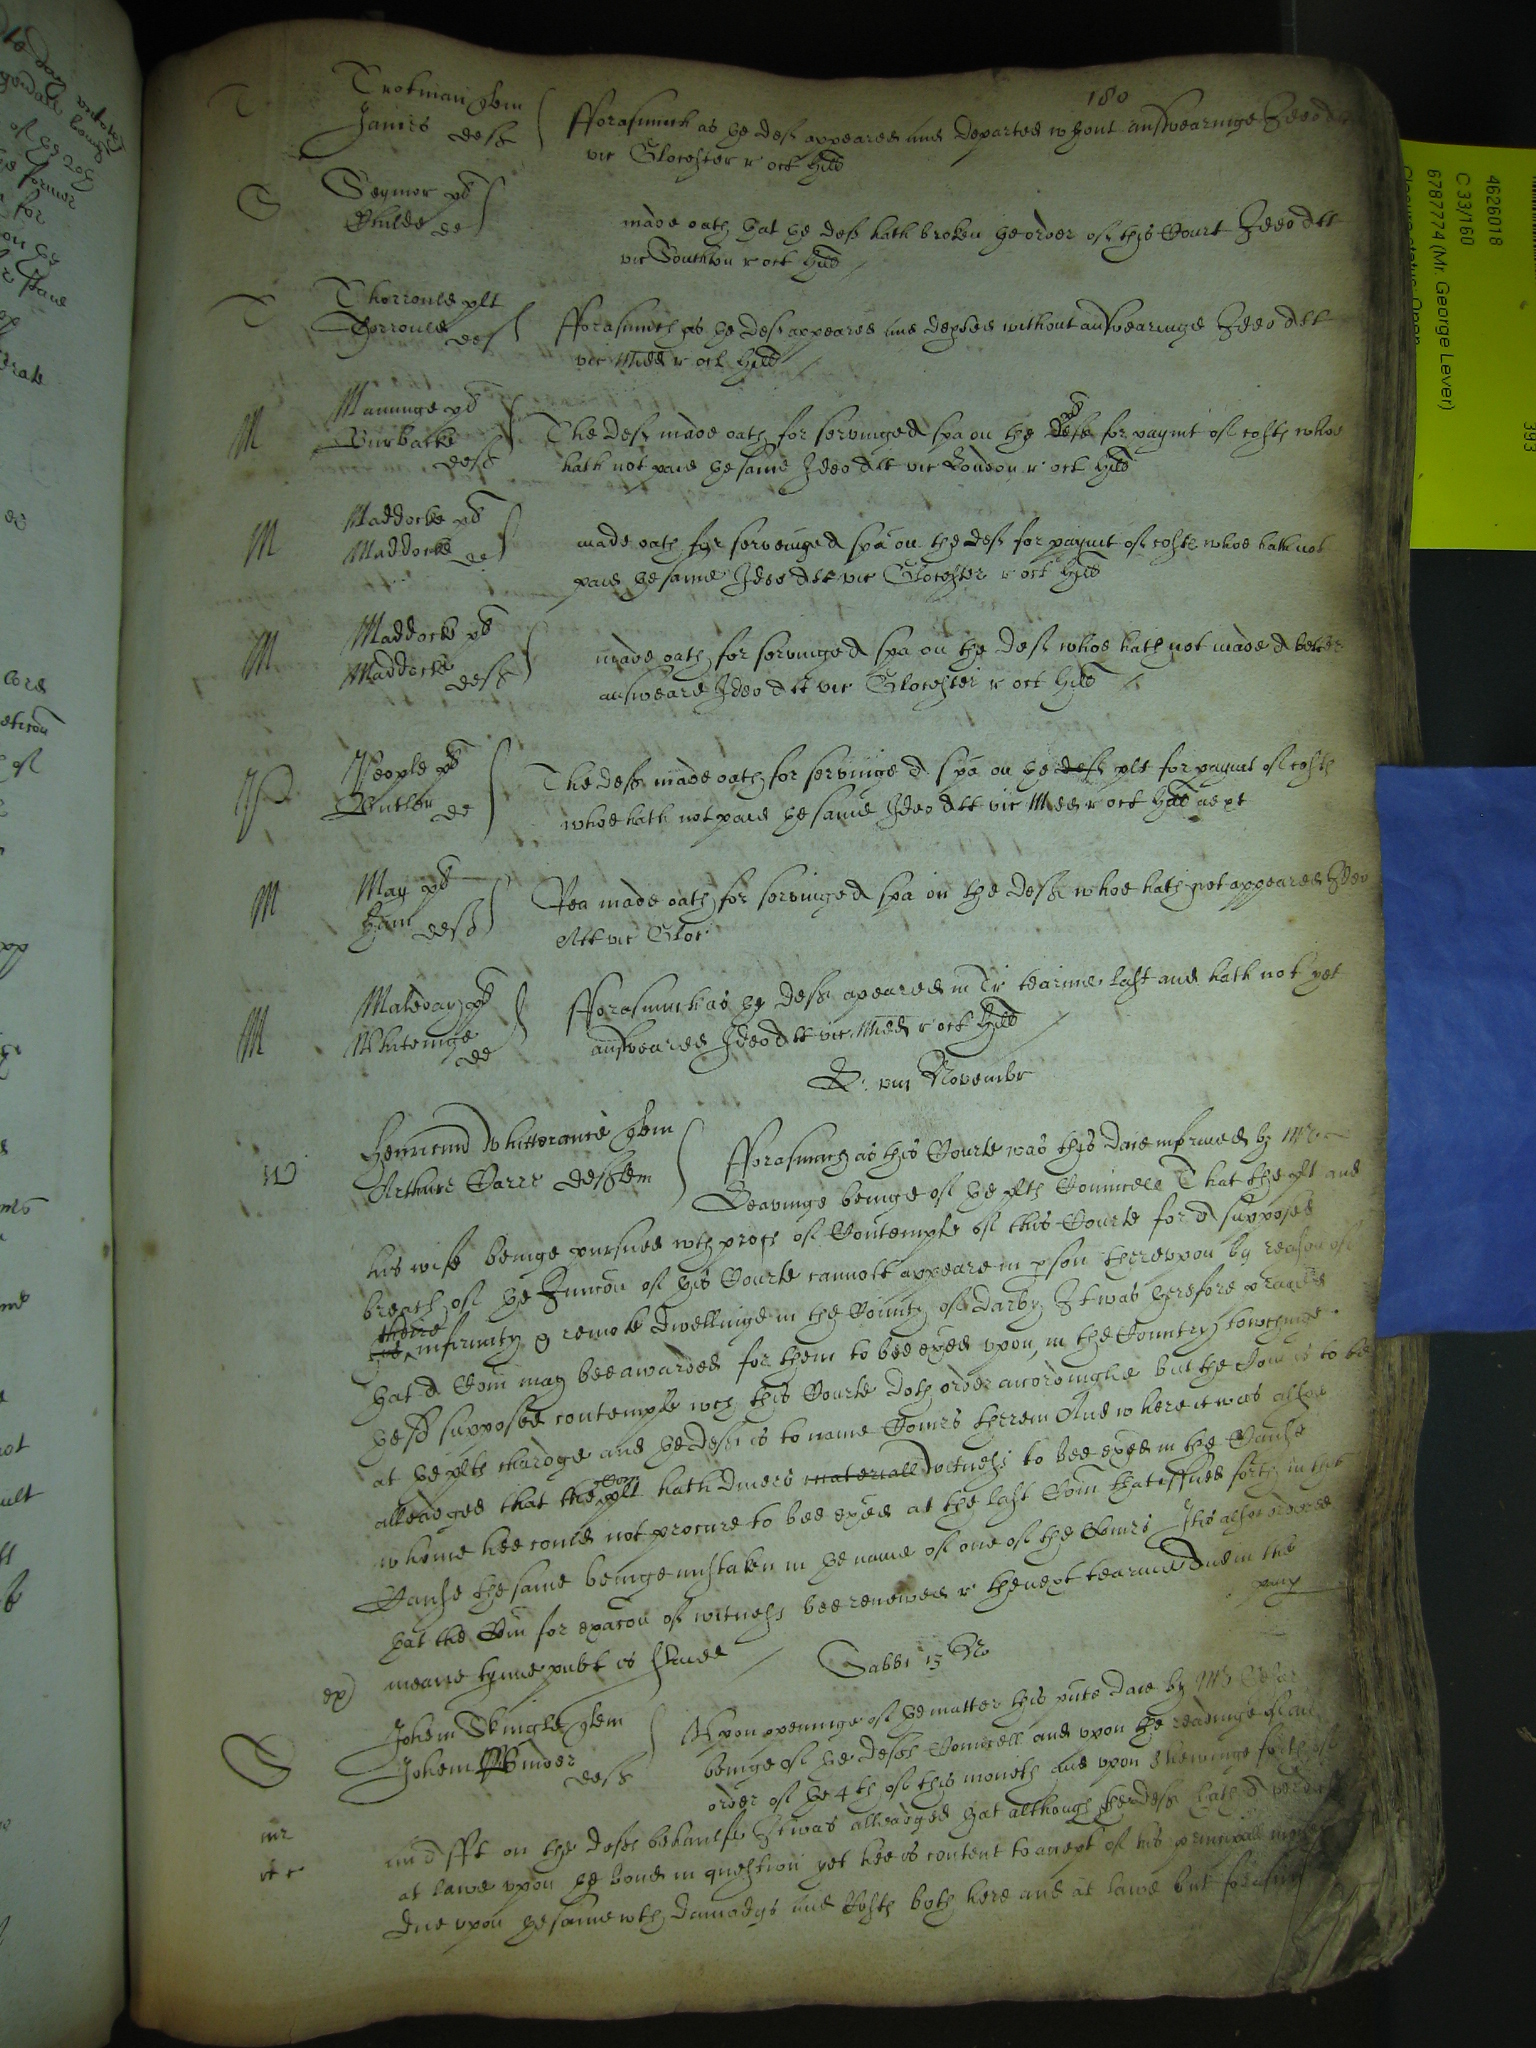 180
T Trotman quer
James deff } fforasmuch as the def appeared and departed wthout answearinge Ideo att
vic Glocester r oct Hill
S Seymor pl
Childe de } made oath that the def hath broken the order of this Court Ideo att
vic Southton r oct Hill
T Thorrould plt
Thorrould def } fforasmuch as the def appeared and depted without answearinge Ideo att
vic Midd r oct Hill
M Manninge pl
Burbacke deff } The def made oath for servinge a spa on the deft pl for paymt of costs whoe
hath not paid the same Ideo att vic London r oct Hill
M Maddocke pl
Maddocke de } made oath for serveinge a spa on the def for paymt of costs whoe hath not
paid the same Ideo att vic Glocester r oct Hill
M Maddocke pl
Maddocke deff } made oath for servinge a spa on the def whoe hath not made a better
answeare Ideo att vic Glocester r oct Hill
P People pl
Butler de } The deff made oath for servinge a spa on the deft plt for paymt of costs
whoe hath not paid the same Ideo att vic Midd r oct Hill
M May pl
Ham deff } made oath for servinge a spa on the deff whoe hath not appeared Ideo
Att vic Gloc
M pl
Whiteinge de } fforasmuch as the deff apeared in Tr tearme last and hath not yet
answeared Ideo att vic Midd r oct Hill
viij Novembr
W quer
Arthure deff } fforasmuch as this Courte was this daie informed by Mr
beinge of the plts Councell That the plt and
his wife beinge pursued wth proces of Contempte of this Courte for a supposed
breach of the Iniuncon of this Courte cannott appeare in pson therevpon by reason of
theire infirmity & remote dwellinge in the County of Darby It was therefore praied
that a Com may bee awarded for them to bee exed vpon, in the Country towchinge
the sd supposed contempte wch this Courte doth order accordinglie but the Com is to be
at the plts chardge and the def is to name Comrs therein And where it was alsoe
alleadged that the plt hath divers materiall witness to bee exed in the Cause
whome hee could not procure to bee exed at the last Com that issued forth in the
Cause the same beinge mistaken in the name of one of the Comrs It is alsoe ordered
that the Com for exacon of witness bee renewed r the next tearme And in the
meane tyme publ is staied
ex)
Sabbi 13 No
S Johem quer
Johem deff } Vpon openinge of the matter this pnte daie by Mr
beinge of the defts Councell and vpon the readinge of an
order of the 4th of this moneth and vpon shewinge forth of
on the defts behaulfe It was alleadged that although the deff hath a verdict
at lawe vpon the bond in question yet hee is content to accept of his principall money
due vpon the same wth damadges and Costs both here and at lawe but forasmuch
4626018
C 33/160
6787774 (Mr. George Lever)